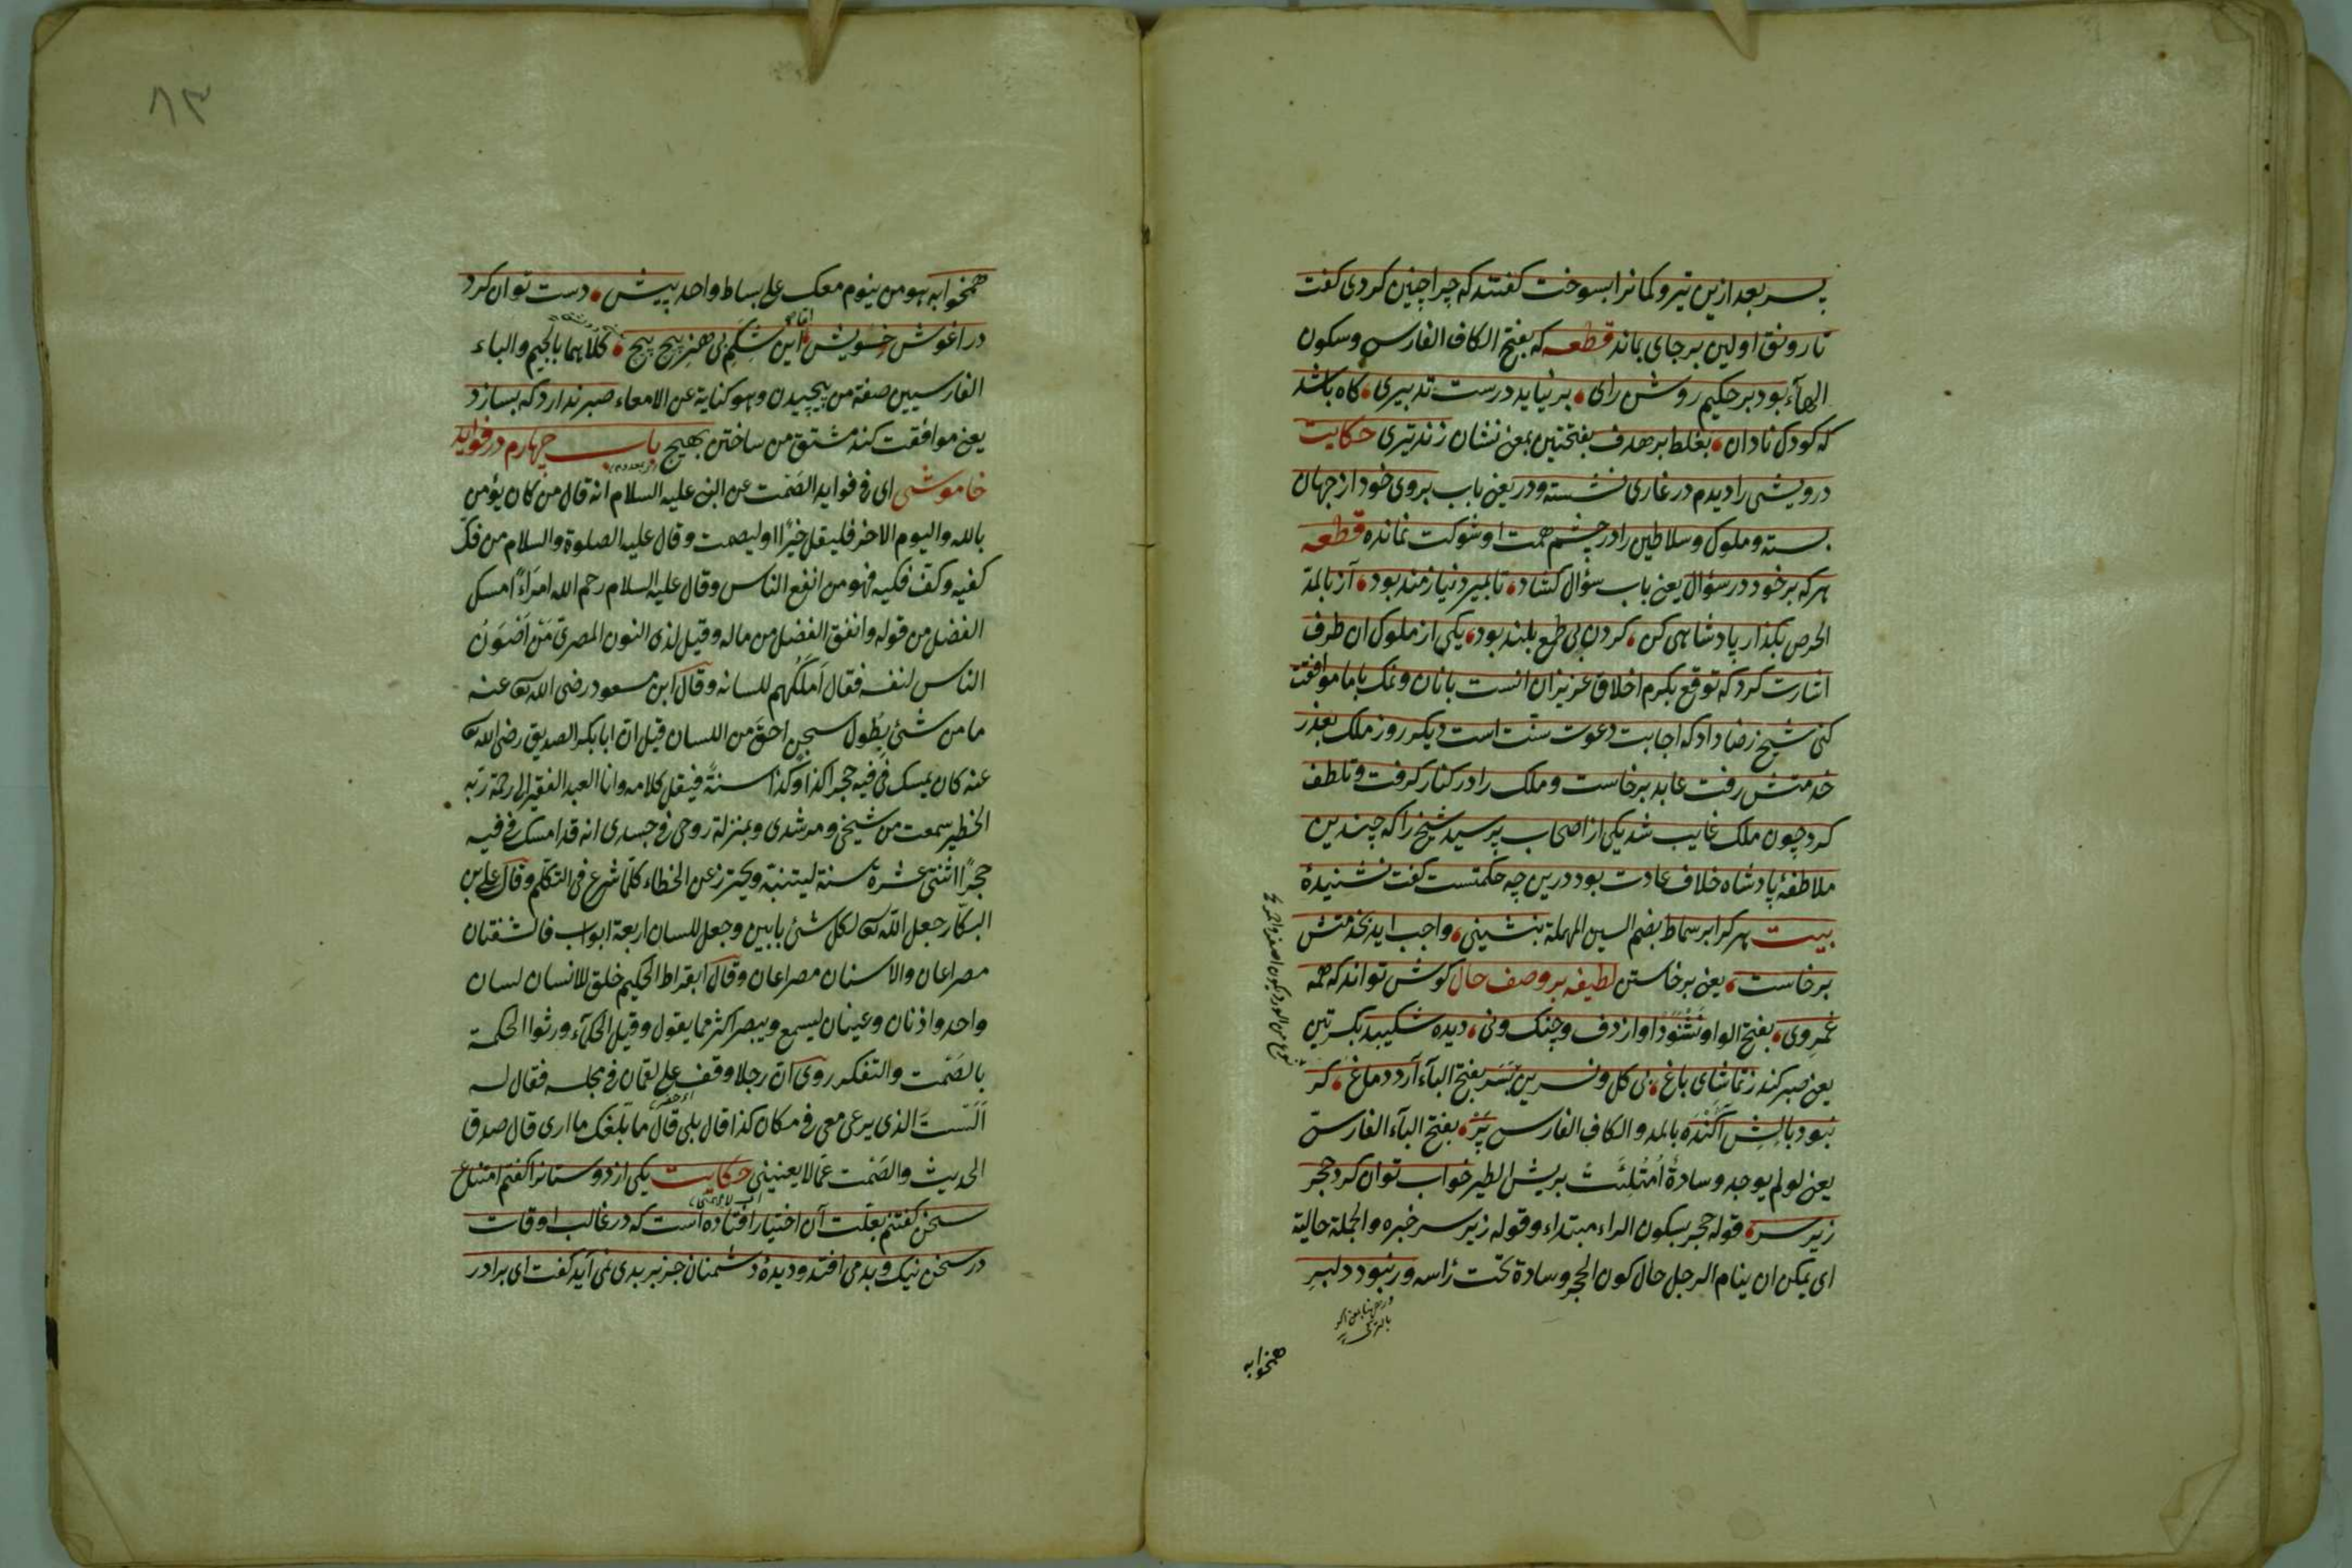 پسر بعد ازین تیر و کمانرا بسوخت کفتند که چرا چنین کردی کفت
تا رونق اولین بر جای بماند قطعه که بفتح الکاف الفارسی وسکون
الهآء بود بر حکیم روشن رای بر نیاید درست تدبیری کاه باشد
که کودک نادان بغلط بر هدف بفتحتین بمعنی نشان زند تیری حکایت
درویشی را دیدم در غاری نشسته ودر یعنی باب بروی خود از جهان
بسته وملوک وسلاطین را در چشم همت او شوکت نمانده قطعه
هر که بر خود در سؤال یعنی باب سؤال کشاد تا بمیرد نیازمند بود آز بالمد
الحرص بکذار پادشاهی کن کردن بی طمع بلند بود یکی از ملوک ان طرف
اشارت کرد که توقع بکرم اخلاق عزیزان انست با نان ونمک با ما موافقت
کنی شیخ رضا داد که اجابت دعوت سنّت است دیکر روز ملک بعذر
خدمتش رفت عابد برخاست وملک را در کنار کرفت وتلطف
کرد چون ملک غایب شد یکی از اصحاب پرسید شیخ را که چندین
ملاطفۀ پادشاه خلاف عادت بود درین چه حکمتست کفت نشنیدۀ
بیت هر کرا بر سماط بضم السین المهملة بنشینی واجب اید بخدمتش
برخاست یعنی برخاستن لطیفه بر وصف حال کوش تواند که همه
عمروی بفتح الواو نشنود اواز دف وچنک ونی دیده شکیبد بکسرتین
یعنی صبر کند ز تماشای باغ بی کل ونسرین بسر بفتح البآء آرد دماغ کر
نبود بالش آکنده بالمد والکاف الفارسی پر بفتح البآء الفارسی
یعنی لو لم یوجد وسادة امتلئت بریش الطیر خواب توان کرد حجر
زیر سر قوله حجر بسکون الراء مبتداء وقوله زیر سر خبره والجملة حالیة
ای یمکن ان ینام الرجل حال کون الحجر وسادة تحت رأسه ور نبود دلبر
همخوابه
٨٣
همخوابه هو من ینوم معک علی بساط واحد پیش دست توان کرد
در اغوش خویش این شکم بی هنر پیچ پیچ کلاهما بالجیم والباء
الفارسیین صفة من پیچیدن وهو کنایة عن الامعاء صبر ندارد که بسازد
یعنی موافقت کند مشتق من ساختن بهیچ باب چهارم در فواید
خاموشی ای فی فواید الصمت عن النبی علیه السلام انه قال من کان یؤمن
بالله والیوم الاخر فلیقل خیرًا او لیصمت وقال علیه الصلوة والسلام من فکّ
کفیه وکفّ فکیه فهو من انفع الناس وقال علیه السلام رحم الله امراءً امسک
الفضل من قوله وانفق الفضل من ماله وقیل لذی النون المصری من اصون
الناس لنفسه فقال املکهم للسانه وقال ابن مسعود رضی الله عنه
ما من شئ بطول سجن احق من اللسان قیل ان ابا بکر الصدیق رضی الله
عنه کان یمسک فی فیه حجرا کذا وکذا سنةً فیقل کلامه وانا العبد الفقیر الی رحمة ربه
الخطیر سمعت من شیخی ومرشدی وبمنزلة روحی فی جسدی انه قد امسک فی فیه
حجرًا اثنتی عشرة سنة لیتنبه ویحترز عن الخطاء کلما شرع فی التکلم وقال علی بن
البکار جعل الله لکل شئ بابین وجعل للسان اربعة ابواب فالشفتان
مصراعان والاسنان مصراعان وقال ابقراط الحکیم خلق للانسان لسان
واحد واذنان وعینان لیسمع ویبصر اکثر مما یقول وقیل الحکمآء ورثوا الحکمة
بالصمت والتفکر روی ان رجلا وقف علی لقمان فی مجلسه فقال له
الست الذی یرعی معی فی مکان کذا قال بلی قال ما بلغک ما اری قال صدق
الحدیث والصمت عما لا یعنینی حکایت یکی از دوستانرا کفتم امتناع
سخن کفتنم بعلت آن اختیار افتاده است که در غالب اوقات
در سخن نیک وبد می افتد ودیدۀ دشمنان جز بر بدی نمی آید کفت ای برادر